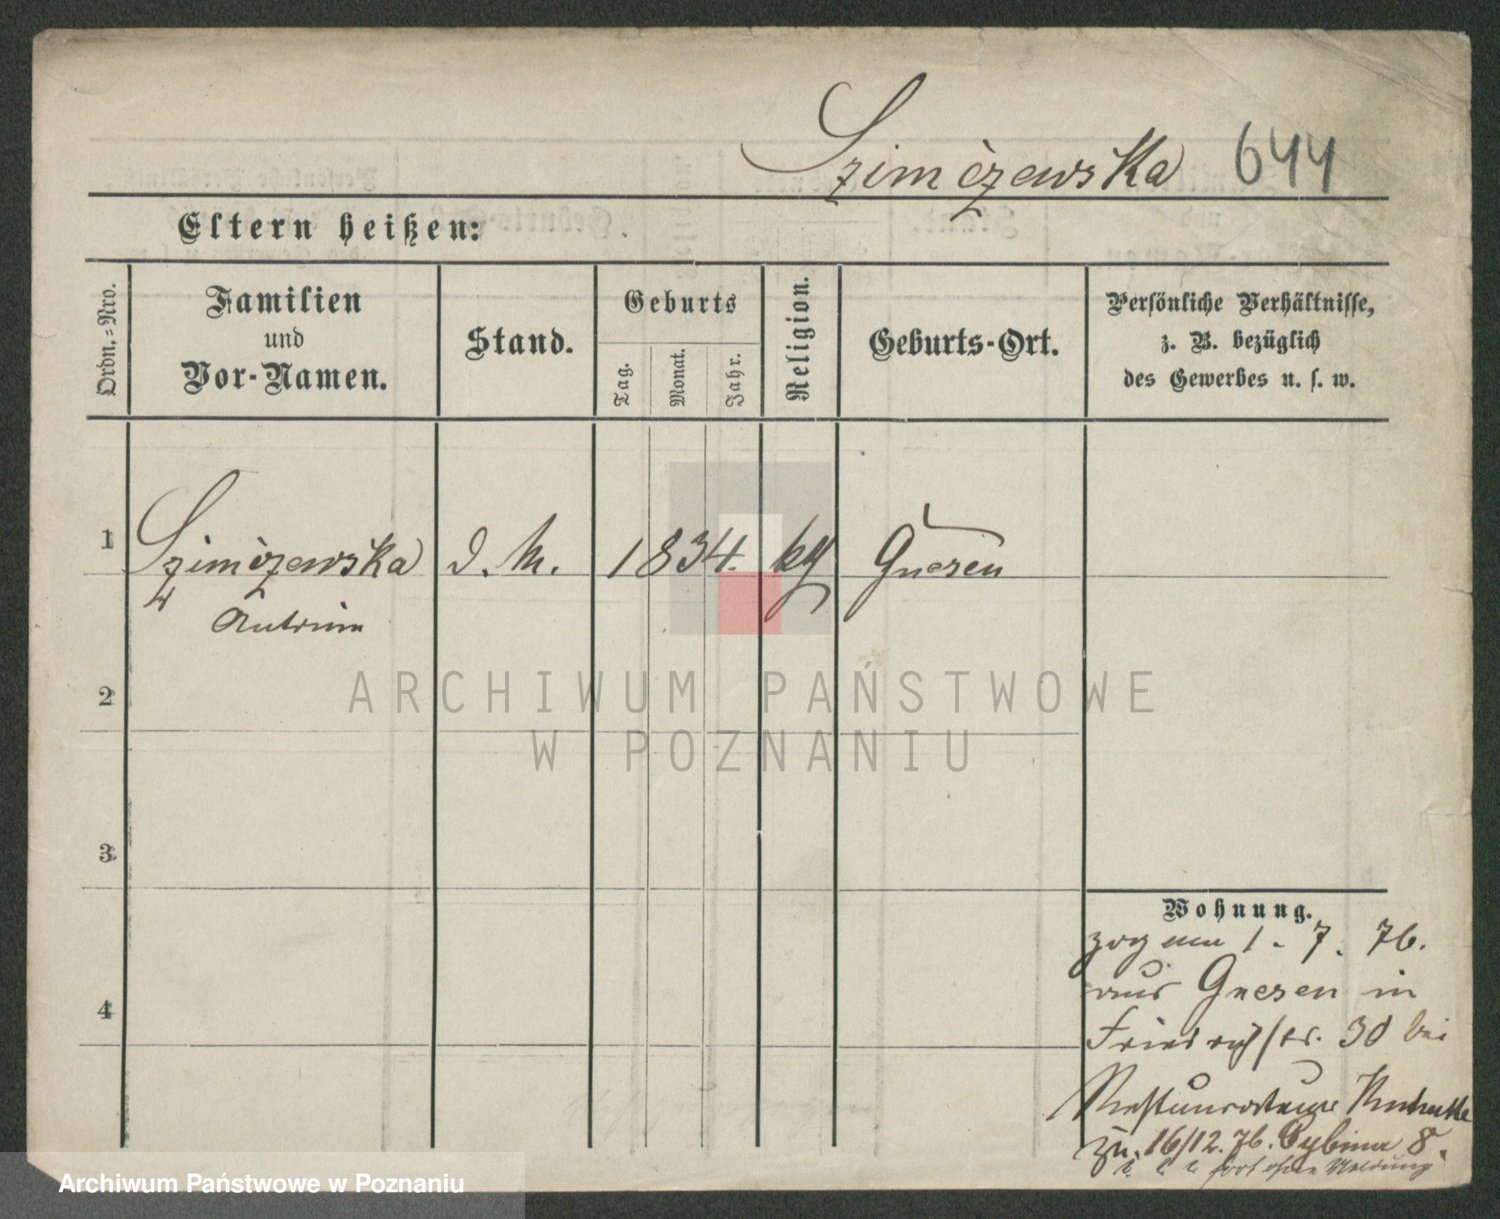 Szimczewska 644
Eltern heißen:
Ordn.-Nro.
Familien
und
Vor-Namen.
Stand.
Geburts
Tag.
Monat.
Jahr.
Religion.
Geburts-Ort.
Persönliche Verhältnisse,
z. B. bezüglich
des Gewerbes u. s. w.
1 Szimczewska d. M. 1834. kg Gnesen
2
ARCHIWUM PAŃSTWOWE
W POZNANIU
3
4
Wohnung.
zog am 1. 7. 76.
aus Gnesen in
Friedrichstr. 30 bei
Restaurateur
zu. 16/12. 76. Cybina 8.
fort ohne Meldung
Archiwum Państwowe w Poznaniu